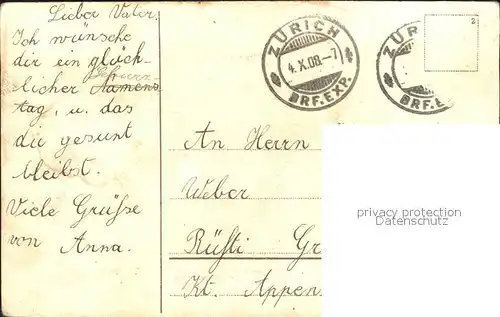 Lieber Vater.
Ich wünsche
dir ein glück-
licher Namens
tag, u. das
du gesunt
bleibst.
Viele Grüsse
von Anna.
ZÜRICH
4.X.08.-7
BRF.EXP.
ZÜR
BRF.E
2
An Herrn
Weber
Rüßti Gr
Kt. Appen
privacy protection
Datenschutz